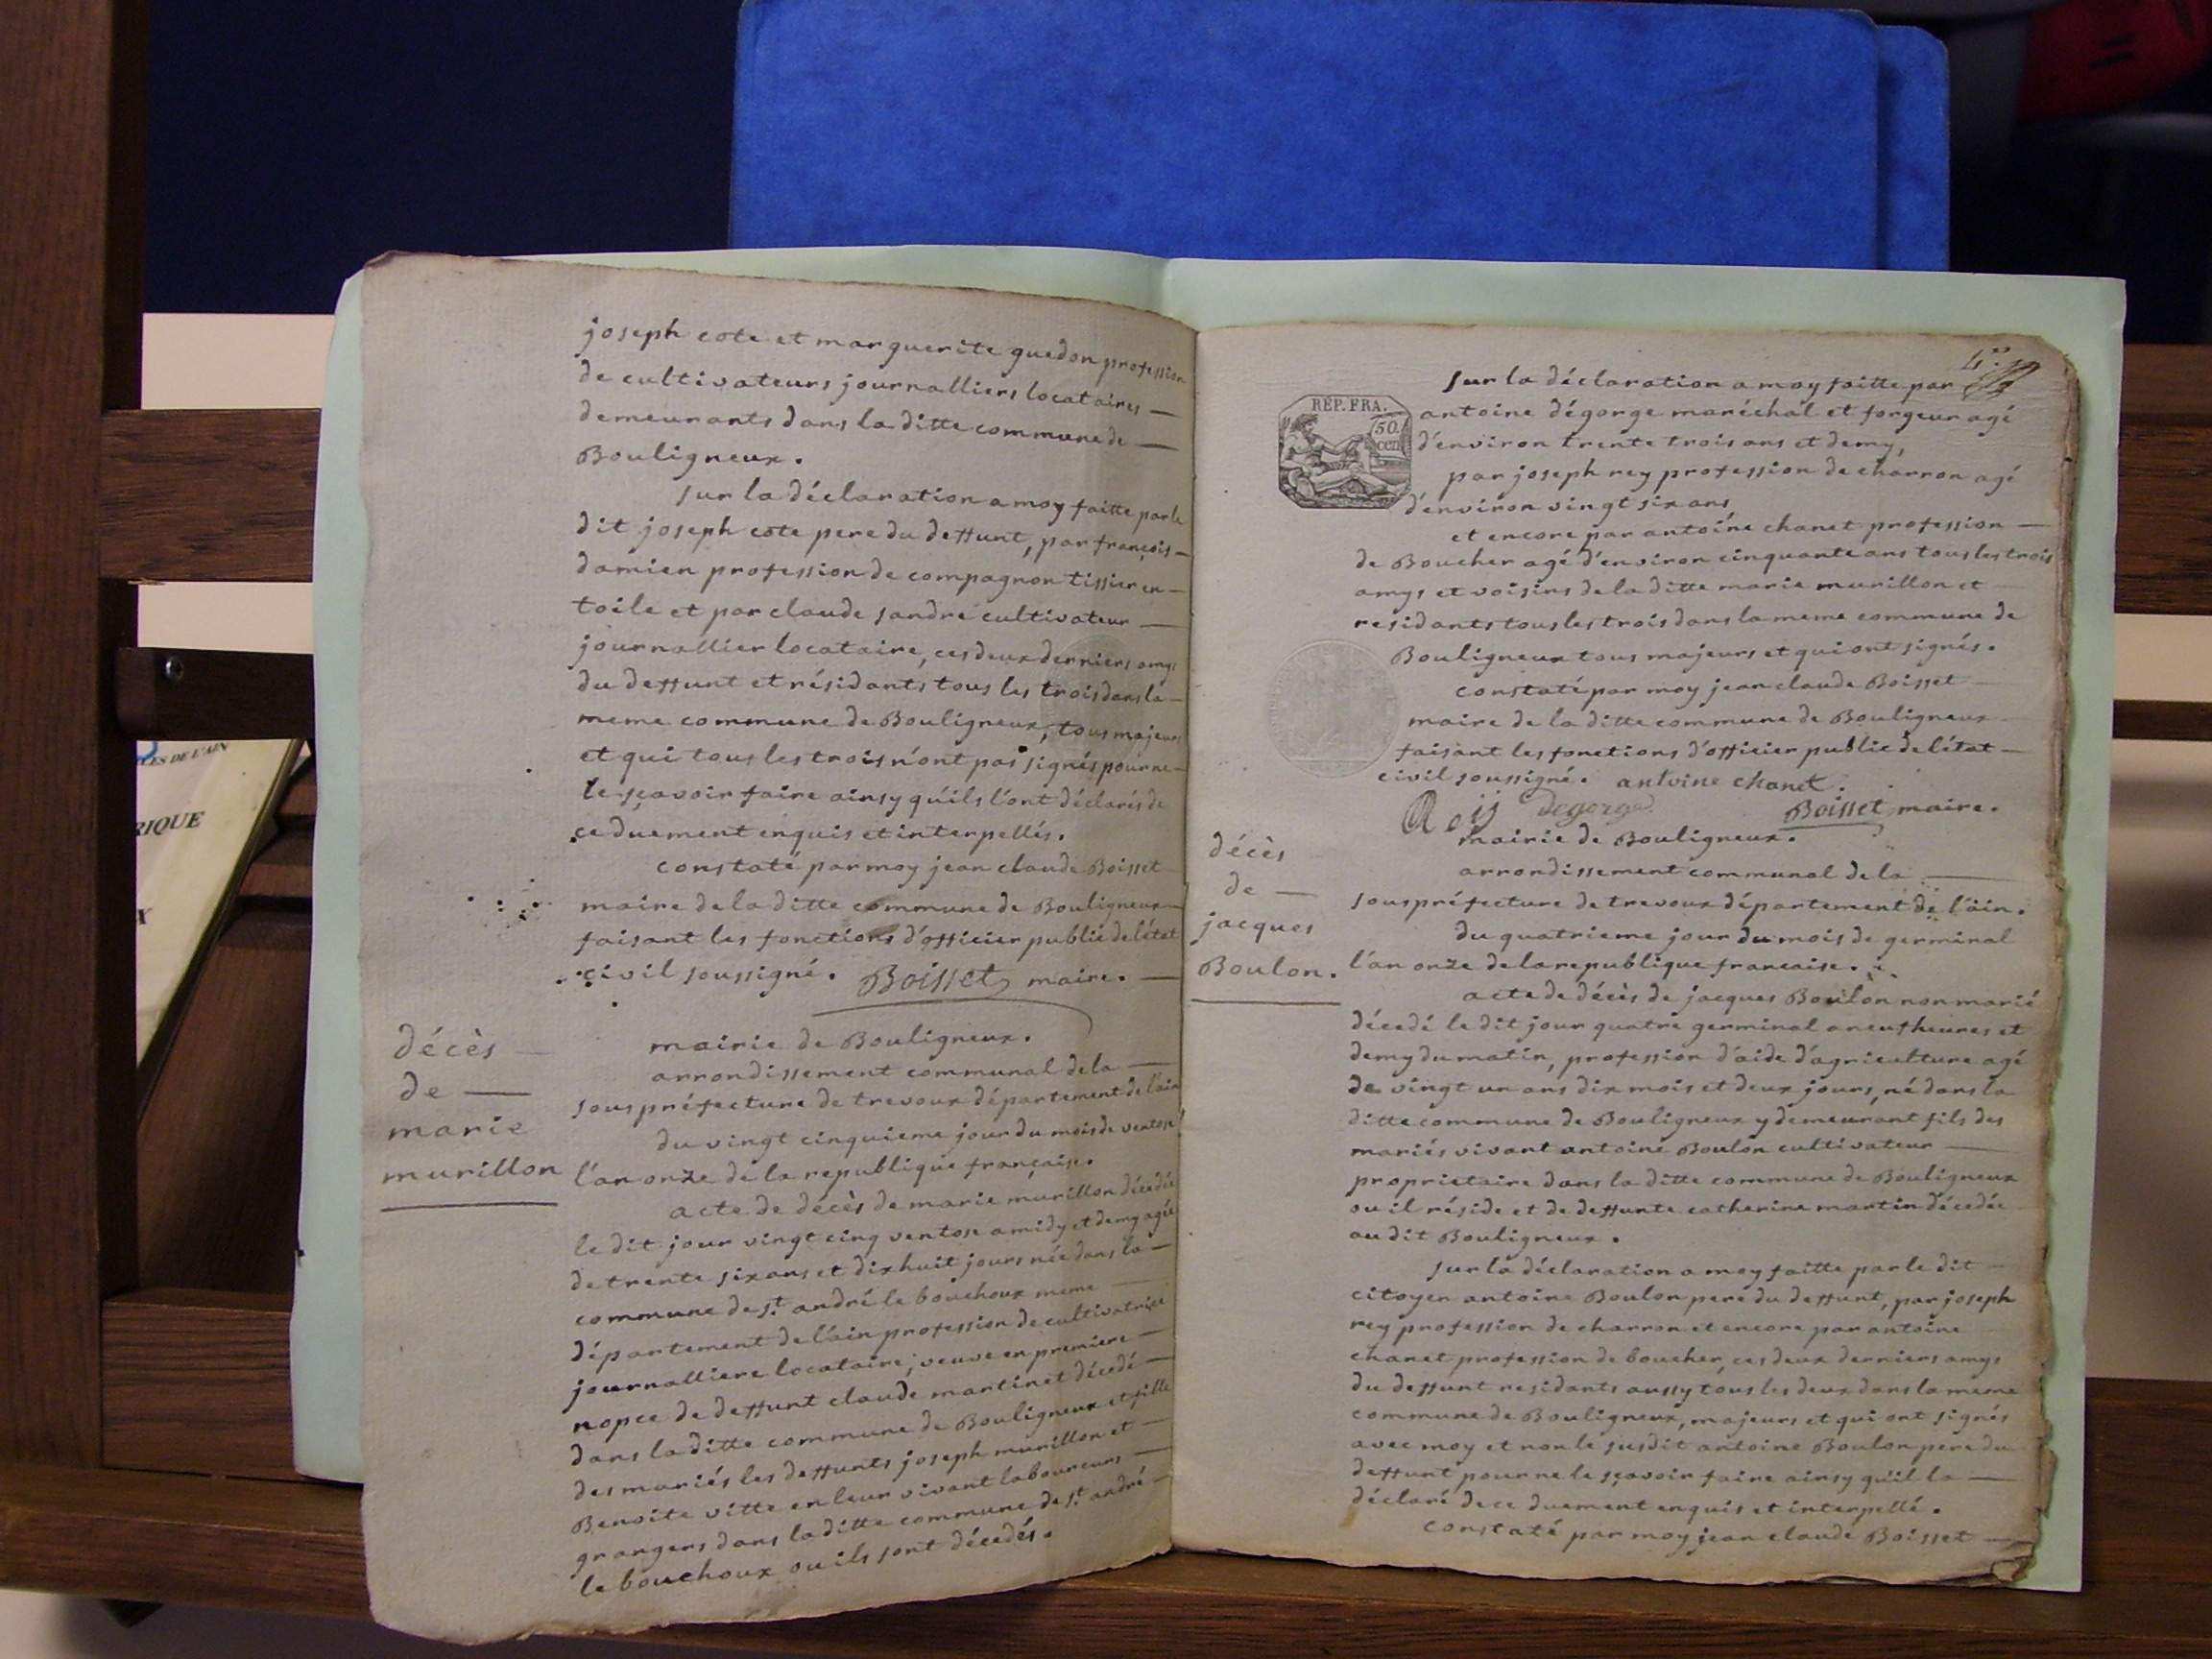 joseph cote et marguerite guedon profession
de cultivateurs journalliers locataires —
demeurants dans la ditte commune de —
Bouligneux.
sur la déclaration a moy faitte par le
dit joseph cote pere du deffunt, par françois —
damien profession de compagnon tissier en —
toile et par claude sandré cultivateur —
journallier locataire, ces deux derniers amys
du deffunt et résidants tous les trois dans la —
meme commune de Bouligneux, tous majeurs
et qui tous les trois n'ont pas signés pour ne —
le sçavoir faire ainsy qu'ils l'ont déclarés de
ce duement enquis et interpellés.
constaté par moy jean claude Boisset
maire de la ditte commune de Bouligneux —
faisant les fonctions d'officier public de l'état
civil soussigné. Boisset maire. —
décès —
de —
marie
murillon
mairie de Bouligneux.
arrondissement communal de la —
souspréfecture de trevoux département de l'ain
du vingt cinquieme jour du mois de ventose
l'an onze de la republique française.
acte de décès de marie murillon décedée
le dit jour vingt cinq ventose a midy et demy agée
de trente six ans et dix huit jours née dans la —
commune de st. andré le bouchoux meme —
département de l'ain profession de cultivatrice
journalliere locataire; veuve en premiere —
nopce de deffunt claude martinet décedé —
dans la ditte commune de Bouligneux et fille
des mariés les deffunts joseph murillon et —
Benoite vitte en leur vivant laboureurs —
grangers dans la ditte commune de st. andré —
le bouchoux ou ils sont décedés.
4e.
sur la déclaration a moy faitte par
RÉP. FRA.
50.
cen
antoine dégorge maréchal et forgeur agé
d'environ trente trois ans et demy,
par joseph rey profession de charron agé
d'environ vingt six ans
et encore par antoine chanet profession —
de Boucher agé d'environ cinquante ans tous les trois
amys et voisins de la ditte marie murillon et
residants tous les trois dans la meme commune de
Bouligneux tous majeurs et qui ont signés.
constaté par moy jean claude Boisset —
maire de la ditte commune de Bouligneux —
faisant les fonctions d'officier public de l'état —
civil soussigné. antoine chanet.
Reÿ degorge Boisset maire.
décès
de —
jacques
Boulon.
mairie de Bouligneux.
arrondissement communal de la —
souspréfecture de trevoux département de l'ain.
du quatrieme jour du mois de germinal
l'an onze de la republique francaise.
acte de décès de jacques Boulon non marié
décedé le dit jour quatre germinal a neuf heures et
demy du matin, profession d'aide d'agriculture agé
de vingt un ans dix mois et deux jours, né dans la
ditte commune de Bouligneux y demeurant fils des
mariés vivant antoine Boulon cultivateur —
proprietaire dans la ditte commune de Bouligneux
ou il réside et de deffunte catherine martin décedée
au dit Bouligneux.
sur la déclaration a moy faitte par le dit —
citoyen antoine Boulon pere du deffunt, par joseph
rey profession de charron et encore par antoine
chanet profession de boucher, ces deux derniers amys
du deffunt residants aussy tous les deux dans la meme
commune de Bouligneux, majeurs et qui ont signés
avec moy et non le susdit antoine Boulon pere du
deffunt pour ne le sçavoir faire ainsy qu'il la —
déclaré de ce duement enquis et interpellé.
constaté par moy jean claude Boisset —
RIQUE
ES DE L'AIN
X